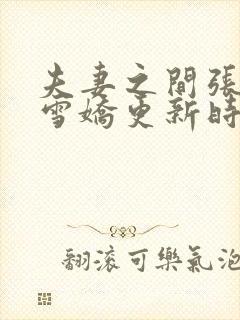 夫妻之間張
雪嬌更新時
翻滾可樂氣泡